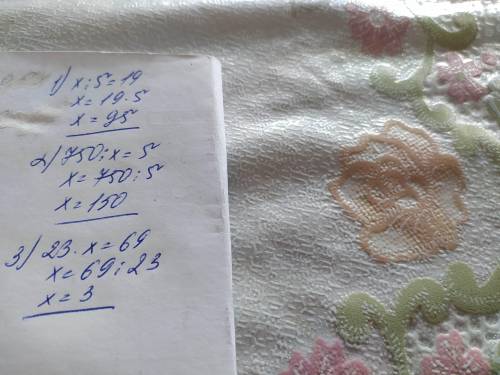 1) x:5=19
x=19·5
x=95
2) 750:x=5
x=750:5
x=150
3) 23·x=69
x=69:23
x=3